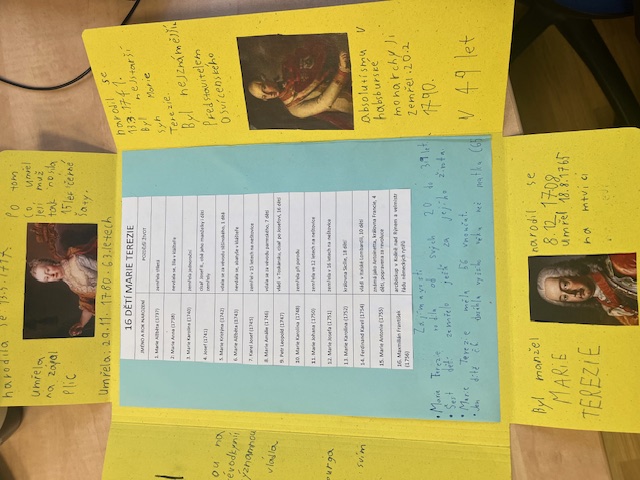 narodil se
13.3 1741.
Byl nejstarší
syn Marie
Terezie.
Byl nejznámějším
Představitelem
Osvícenského
absolutismu v
habsburské
monarchy ji.
Zemřel 20.2
1790.
V 49 let
Po tom
co umřel
její muž
tak nosila
15 let černé
šaty.
narodila se
umřela
na zápal
plic
Umřela: 29.11. 1780. 63 letech
16 DĚTÍ MARIE TEREZIE
JMÉNO A ROK NAROZENÍ POZDĚJŠÍ ŽIVOT
1. Marie Alžběta (1737) zemřela tříletá
2. Marie Anna (1738) nevdala se, žila v klášteře
3. Marie Karolína (1740) zemřela jednoroční
4. Josef (1741) císař Josef II., vládl jako mocnářky, děti zemřely
5. Marie Kristýna (1742) vdala se za vévodu těšínského, 1 dítě
6. Marie Alžběta (1743) nevdala se, abatyše v klášteře
7. Karel Josef (1745) zemřel v 15 letech na neštovice
8. Marie Amálie (1746) vdala se za vévodu parmského, 7 dětí
9. Petr Leopold (1747) vládl v Toskánsku, císař po Josefovi, 16 dětí
10. Marie Karolína (1748) zemřela při porodu
11. Marie Johana (1750) zemřela ve 12 letech na neštovice
12. Marie Josefa (1751) zemřela v 16 letech na neštovice
13. Marie Karolína (1752) královna Sicílie, 18 dětí
14. Ferdinand Karel (1754) vládl v italské Lombardii, 10 dětí
15. Marie Antonie (1755) známá jako Antoinetta, královna Francie, 4 děti, popravena za revoluce
16. Maxmilián František (1756) arcibiskup v Kolíně nad Rýnem a velmistr Řádu německých rytířů
Zajímavosti
• Marie Terezie rodila od svých 20 do 39 let
• Šest dětí zemřelo ještě za jejího života
• Marie Terezie měla 56 vnoučat
• Jen dítě č.6 se dožilo vyššího věku než matka (65
narodil se
8.12. 1708
Umřel 18.8.1765
na mrtvici
Byl manžel
MARIE
TEREZIE
ou na
évodkyní
významnou
vládla
burga
svým